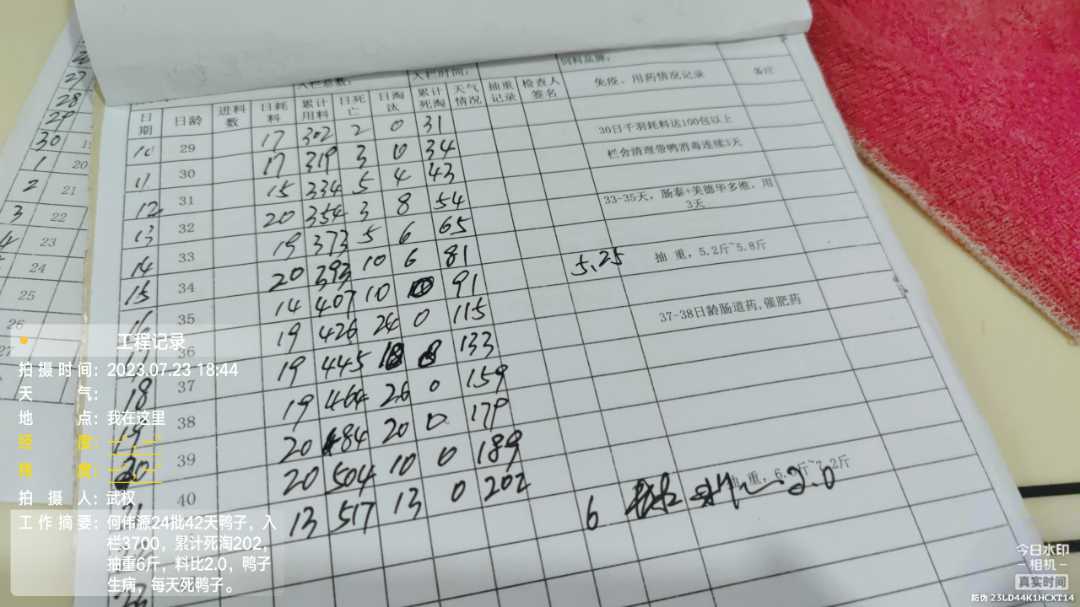 入栏总数：
入栏时间：
饲料品牌：
日期 日龄 进料数 日耗料 累计用料 日死亡 日淘汰 累计死淘 天气情况 抽重记录 检查人签名 免疫、用药情况记录 备注
10 29 17 302 2 0 31
11 30 17 319 3 0 34 30日千羽耗料达100包以上
12 31 15 334 5 4 43 栏舍清理带鸭消毒连续3天
13 32 20 354 3 8 54
14 33 19 373 5 6 65 33-35天，肠泰+美德华多维，用3天
15 34 20 393 10 6 81
16 35 14 407 10 0 91 5.25 抽 重，5.2斤~5.8斤
36 19 426 24 0 115
18 37 19 445 18 133 37-38日龄肠道药，催肥药
19 38 19 464 26 0 159
20 39 20 484 20 0 179
40 20 504 10 0 189
13 517 13 0 202 6 2.0
27
28
29
30
1 20
2 21
3 22
4 23
24
25
26
27
工程记录
拍 摄 时 间：2023.07.23 18:44
天 气：
地 点：我在这里
经 度：
纬 度：
拍 摄 人：武权
工 作 摘 要：何伟源24批42天鸭子，入
栏3700，累计死淘202，
抽重6斤，料比2.0，鸭子
生病，每天死鸭子。
今日水印
相机
真实时间
防伪 23LD44K1HCXT14